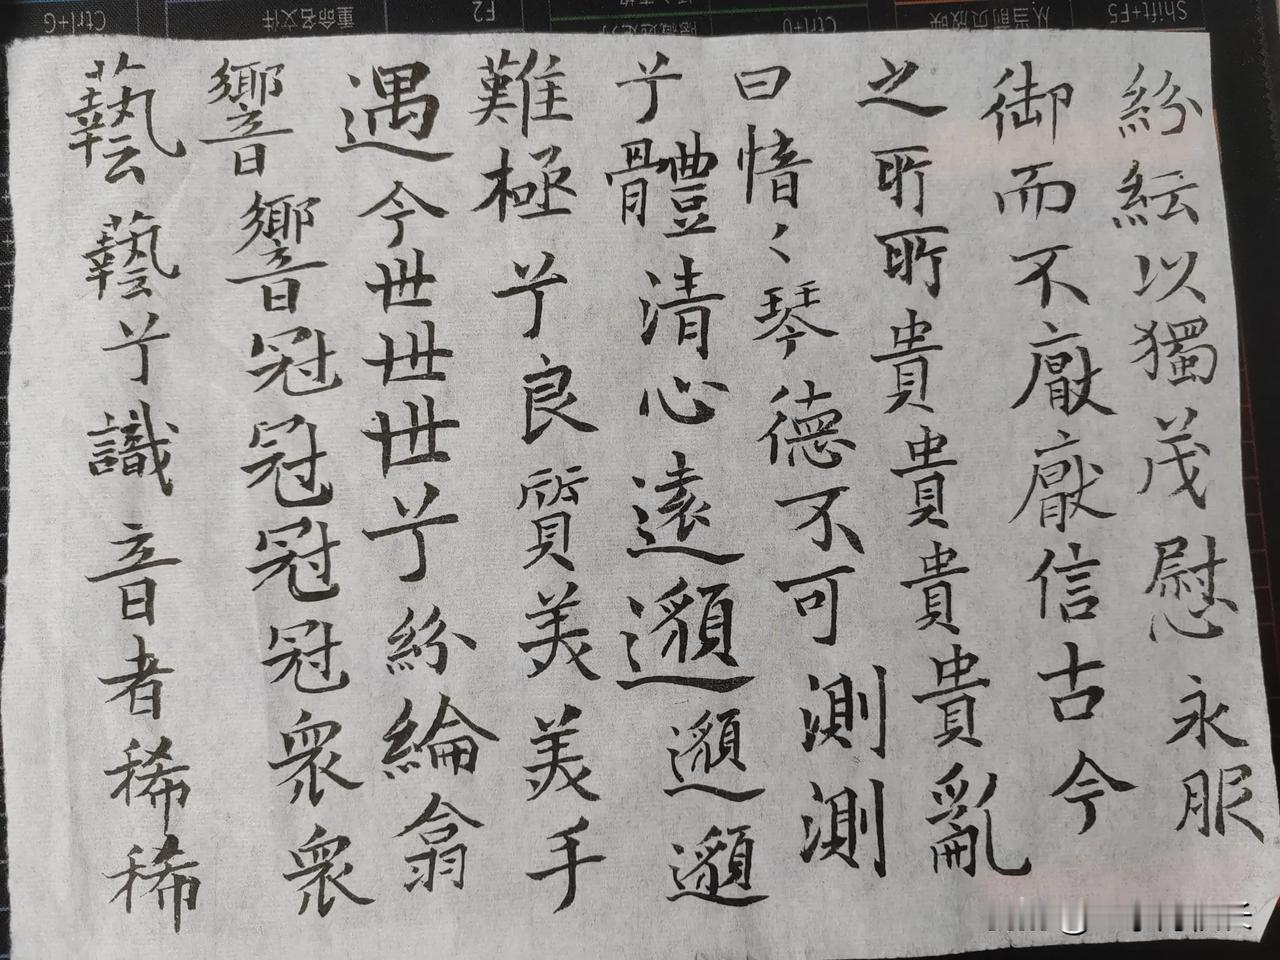 Ctrl+G
重命名文件
F2
Ctrl+U
从当前页放映
Shift+F5
紛紜以獨茂慰永服
御而不厭厭信古今
之所所貴貴貴貴亂
曰愔々琴德不可測測
兮體清心遠邈邈邈
難極兮良質美美手
遇今世世世兮紛綸翕
響響冠冠冠冠眾眾
藝藝兮識音者稀稀